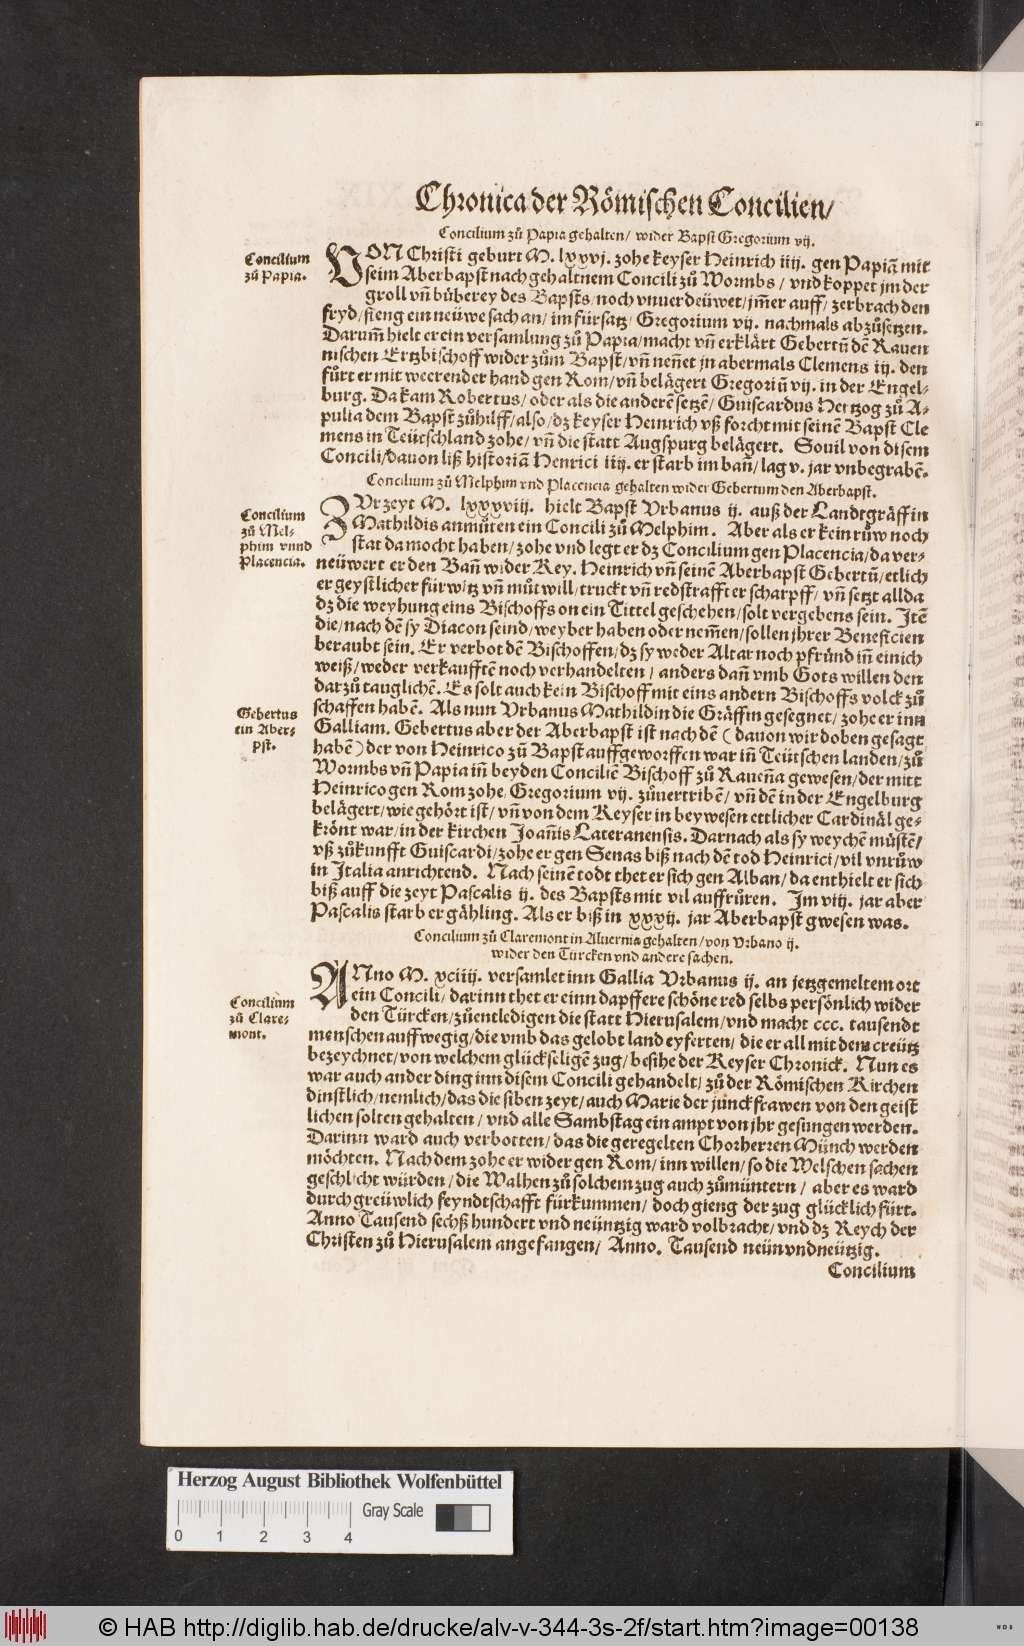 Chronica der Römischen Concilien/
Concilium zů Papia gehalten/ wider Bapst Gregorium vij.
Concilium
zů Papia.
VON Christi geburt M. lxxvj. zohe keyser Heinrich iiij. gen Papiã mit
seim Aberbapst nach gehaltnem Concili zů Wormbs/ vnd koppet jm der
groll vñ bůberey des Bapsts/ noch vnuerdeüwet/ jm̃er auff/ zerbrach den
fryd/ fieng ein neüwe sach an/ im fürsatz/ Gregorium vij. nachmals abzůsetzen.
Darum̃ hielt er ein versamlung zů Papia/ macht vñ erklärt Gebertũ dẽ Rauen
nischen Ertzbischoff wider zům Bapst/ vñ neñet jn abermals Clemens iij. den
fůrt er mit weerender hand gen Rom/ vñ belägert Gregoriũ vij. in der Engel-
burg. Da kam Robertus/ oder als die anderẽ setzẽ/ Guiscardus Hertzog zů A-
pulia dem Bapst zůhilff/ also/ dz keyser Heinrich vß forcht mit seinẽ Bapst Cle
mens in Teütschland zohe/ vñ die statt Augspurg belägert. Souil von disem
Concili/ dauon liß historiã Henrici iiij. er starb im bañ/ lag v. jar vnbegrabẽ.
Concilium zů Melphim vnd Placencia gehalten wider Gebertum den Aberbapst.
Concilium
zů Mel-
phim vnnd
Placencia.
ZVr zeyt M. lxxxviij. hielt Bapst Vrbanus ij. auß der Landtgräffin
Mathildis anmůten ein Concili zů Melphim. Aber als er kein růw noch
stat da mocht haben/ zohe vnd legt er dz Concilium gen Placencia/ da ver-
neüwert er den Bañ wider Key. Heinrich vñ seinẽ Aberbapst Gebertũ/ etlich
er geystlicher fürwitz vñ můtwill/ truckt vñ redstrafft er scharpff/ vñ setzt allda
dz die weyhung eins Bischoffs on ein Tittel geschehen/ solt vergebens sein. Jtẽ
die/ nach dẽ sy Diacon seind/ weyber haben oder nem̃en/ sollen jhrer Beneficien
beraubt sein. Er verbot dẽ Bischoffen/ dz sy weder Altar noch pfründ iñ einich
weiß/ weder verkaufftẽ noch verhandelten/ anders dañ vmb Gots willen den
darzů tauglichẽ. Es solt auch kein Bischoff mit eins andern Bischoffs volck zů
schaffen habẽ. Als nun Vrbanus Mathildin die Gräffin gesegnet/ zohe er inn
Gebertus
ein Aber-
pst.
Galliam. Gebertus aber der Aberbapst ist nach dẽ (dauon wir doben gesagt
habẽ) der von Heinrico zů Bapst auffgeworffen war iñ Teütschen landen/ zů
Wormbs vñ Papia iñ beyden Conciliẽ Bischoff zů Raueña gewesen/ der mitt
Heinrico gen Rom zohe/ Gregorium vij. zůvertribẽ/ vñ dẽ in der Engelburg
belägert/ wie gehört ist/ vñ von dem Keyser in beywesen ettlicher Cardinäl ge-
krönt war/ in der kirchen Joañis Lateranensis. Darnach als sy weychẽ můstẽ/
vß zůkunfft Guiscardi/ zohe er gen Senas biß nach dẽ tod Heinrici/ vil vnrůw
in Italia anrichtend. Nach seinẽ todt thet er sich gen Alban/ da enthielt er sich
biß auff die zeyt Pascalis ij. des Bapsts mit vil auffrůren. Im viij. jar aber
Pascalis starb er gähling. Als er biß in xxxij. jar Aberbapst gwesen was.
Concilium zů Claremont in Aluernia gehalten/ von Vrbano ij.
wider den Türcken vnd andere sachen.
Concilium
zů Clare-
mont.
ANno M. xciiij. versamlet inn Gallia Vrbanus ij. an jetzgemeltem ort
ein Concili/ darinn thet er einn dapffere schöne red selbs persönlich wider
den Türcken/ zůentledigen die statt Hierusalem/ vnd macht ccc. tausendt
menschen auffwegig/ die vmb das gelobt land eyferten/ die er all mit dem creütz
bezeychnet/ von welchem glückseligẽ zug/ besihe der Keyser Chronick. Nun es
war auch ander ding inn disem Concili gehandelt/ zů der Römischen Kirchen
dinstlich/ nemlich/ das die siben zeyt/ auch Marie der junckfrawen von den geist
lichen solten gehalten/ vnd alle Sambstag ein ampt von jhr gesungen werden.
Darinn ward auch verbotten/ das die geregelten Chorherren Münch werden
möchten. Nach dem zohe er wider gen Rom/ inn willen/ so die Welschen sachen
geschlicht würden/ die Walhen zů solchem zug auch zůmüntern/ aber es ward
durch greüwlich feyndtschafft fürkummen/ doch gieng der zug glücklich fürt.
Anno Tausend sechß hundert vnd neüntzig ward volbracht/ vnd dz Reych der
Christen zů Hierusalem angefangen/ Anno. Tausend neün vnd neützig.
Concilium
Herzog August Bibliothek Wolfenbüttel
Gray Scale
0 1 2 3 4
© HAB http://diglib.hab.de/drucke/alv-v-344-3s-2f/start.htm?image=00138